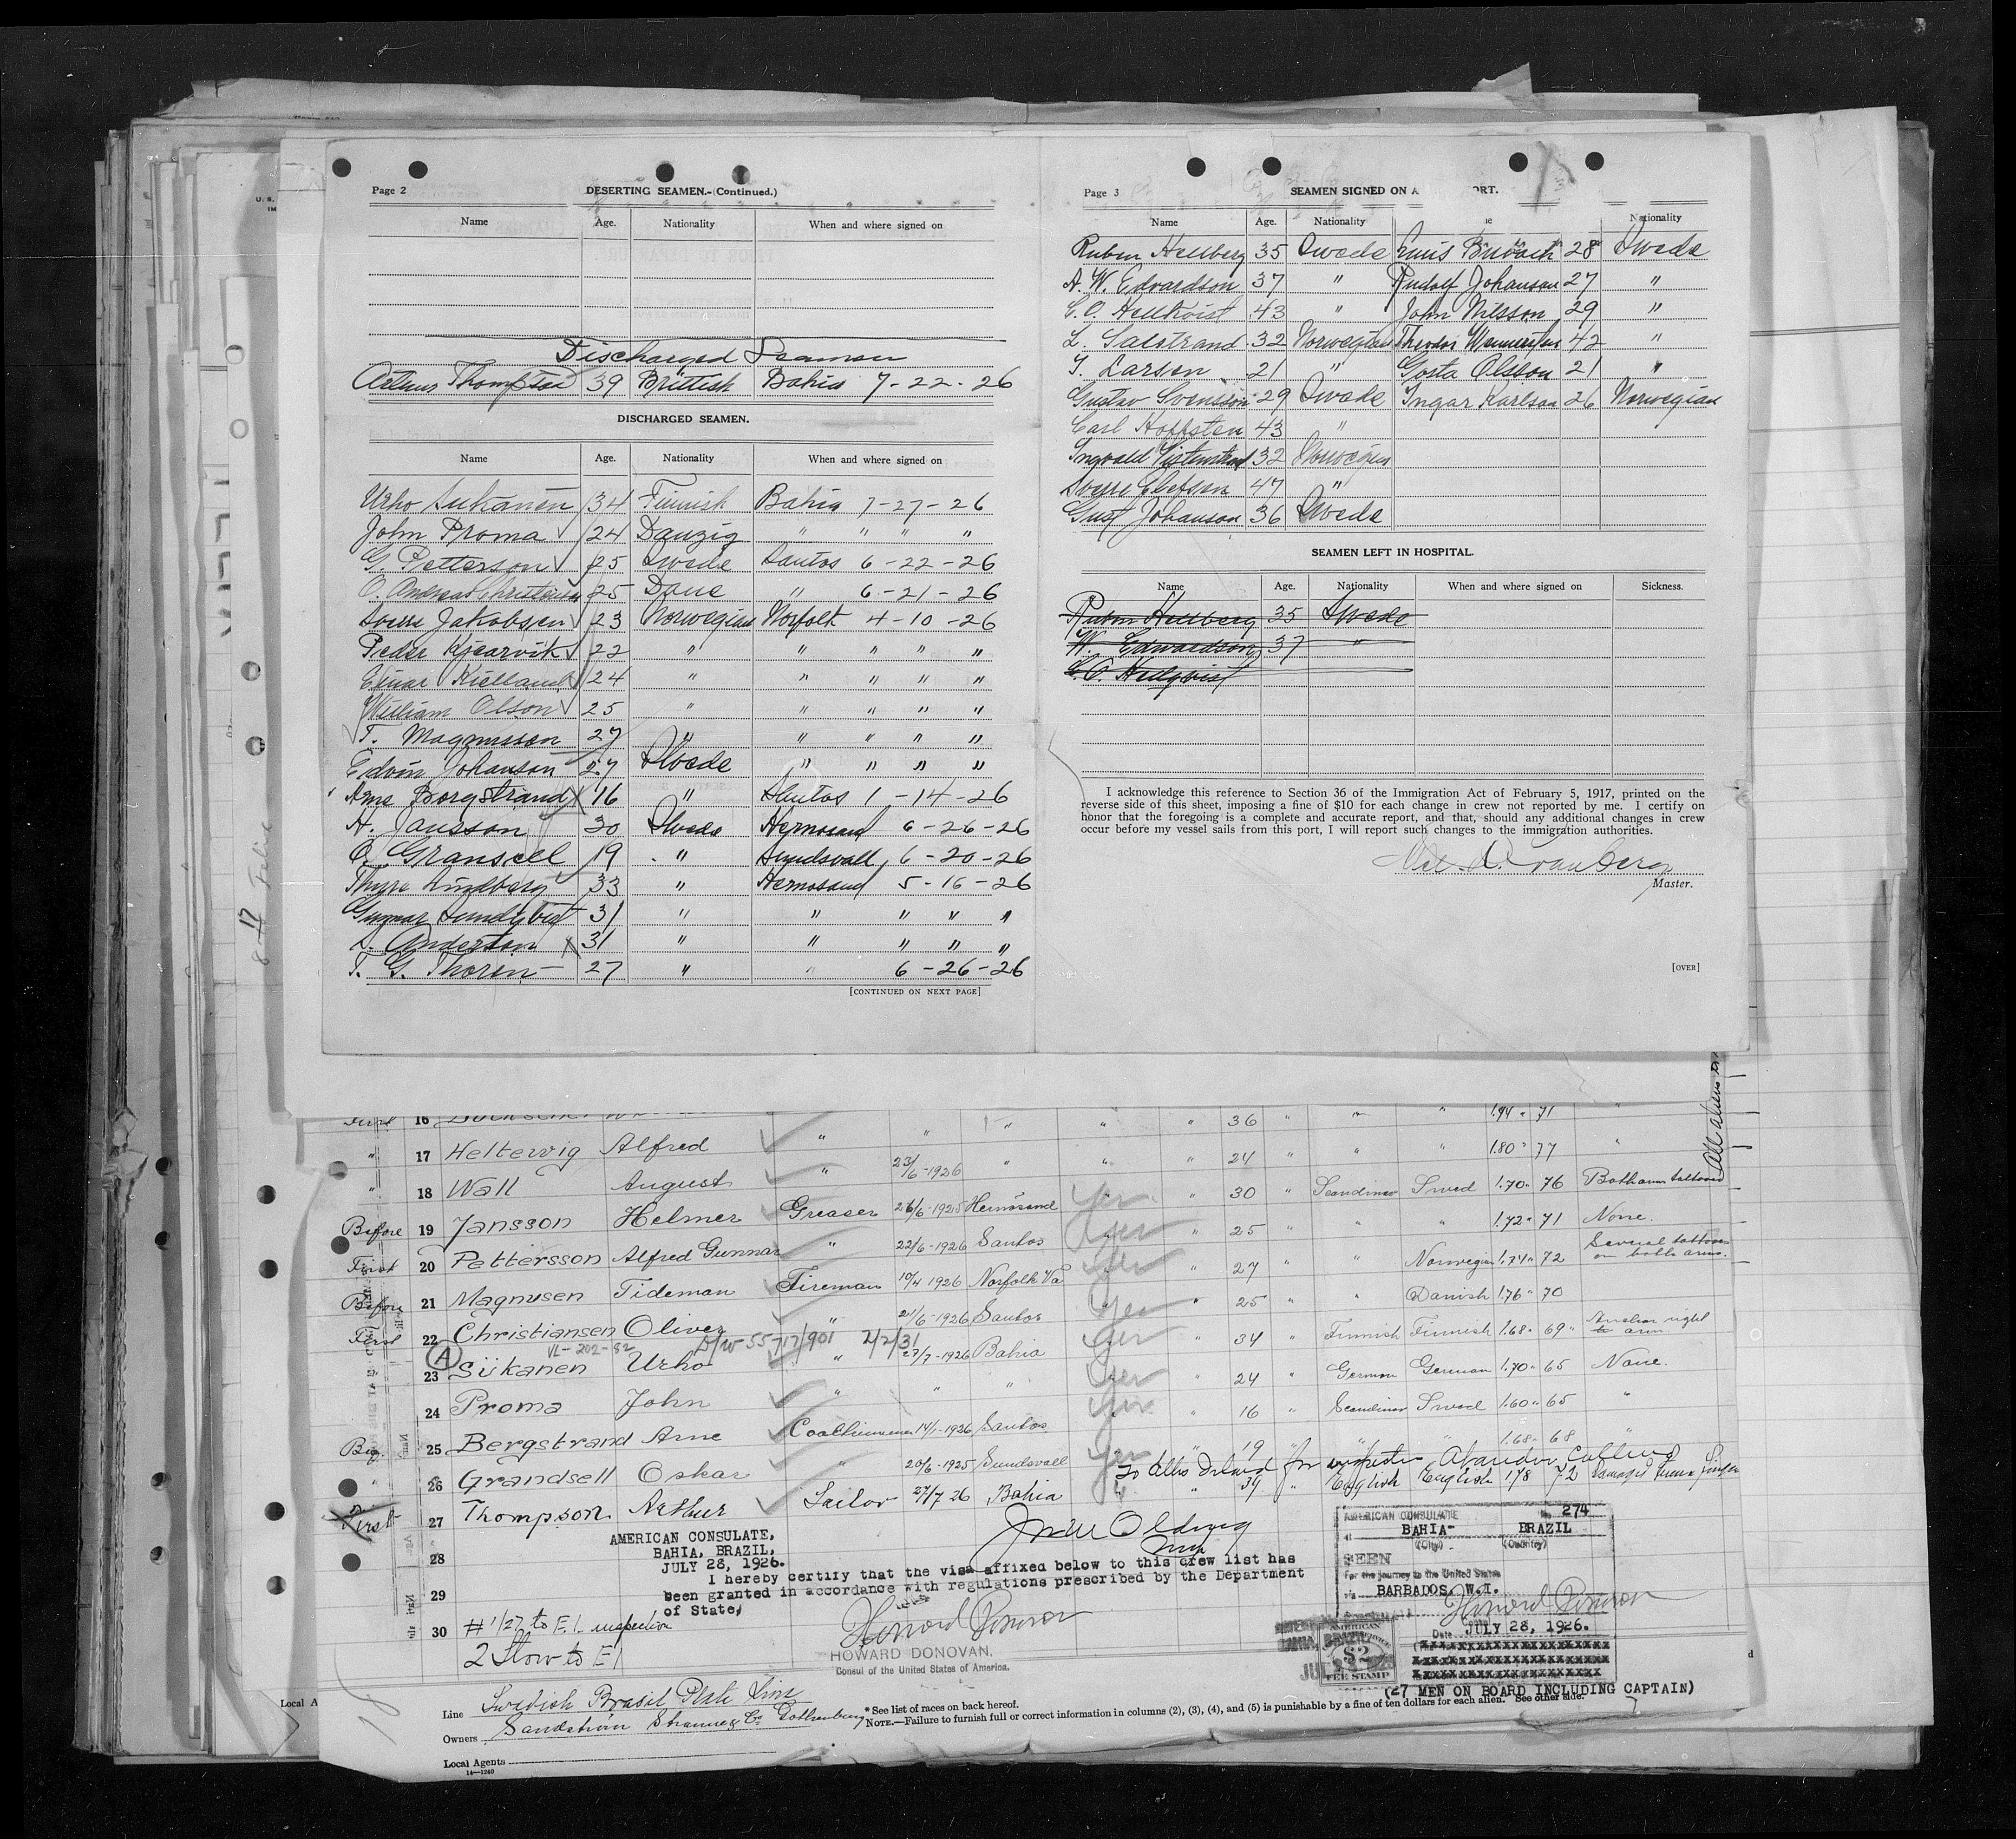 Page 2
DESERTING SEAMEN.-(Continued.)
Name Age. Nationality When and where signed on
Discharged Seamen
Arthur Thompson 39 Brittish Bahia 7-22-26
DISCHARGED SEAMEN.
Name Age. Nationality When and where signed on
Urho Siikanen 34 Finnish Bahia 7-27-26
John Proma 24 Danzig " " " "
G. Petterson 25 Swede Santos 6-22-26
O. Andreas Christensen 25 Dane " 6-21-26
Sverre Jakobsen 23 Norwegian Norfolk 4-10-26
Peder Kjearvik 22 " " " " "
Einar Kielland 24 " " " " "
William Olson 25 " " " " "
T. Magnussen 27 " " " " "
Edvin Johanson 27 Swede " " " "
Arne Borgstrand 16 " Santos 1-14-26
H. Jansson 30 Swede Hernosand 6-26-26
O. Granscell 19 " Sundsvall 6-20-26
Thyre Lindberg 33 " Hernosand 5-16-26
Gunnar Lundqvist 31 " " " " "
Anderson 31 " " " " "
T. G. Thorin 27 " " 6-26-26
[CONTINUED ON NEXT PAGE]
Page 3
SEAMEN SIGNED ON A ORT.
Name Age. Nationality Age. Nationality
Ruben Hellberg 35 Swede 28 Swede
A. W. Edvardson 37 " Rudolf Johanson 27 "
C. O. Hellkvist 43 " John Nilsson 29 "
L. Salstrand 32 Norwegian Theodor 42 "
T. Larsen 21 " Gosta Olsson 21 "
Gustav Svensson 29 Swede Ingar Karlson 26 Norwegian
Carl Hoffsten 43 "
Ingvald 32 Norwegian
Sverre Elefsen 47 "
Gust Johanson 36 Swede
SEAMEN LEFT IN HOSPITAL.
Name Age. Nationality When and where signed on Sickness.
Ruben Hellberg 35 Swede
W. Edwardson 37 "
C. O. Hellqvist
I acknowledge this reference to Section 36 of the Immigration Act of February 5, 1917, printed on the
reverse side of this sheet, imposing a fine of $10 for each change in crew not reported by me. I certify on
honor that the foregoing is a complete and accurate report, and that, should any additional changes in crew
occur before my vessel sails from this port, I will report such changes to the immigration authorities.
Master.
[OVER]
16 36 " " " 1.94 " 71
" 17 Heltewig Alfred " " " " " 24 " " 1.80 " 77
" 18 Wall August " 23/6-1926 " 30 " Scandinav Swed 1.70 " 76
Before 19 Jansson Helmer Greaser 26/6-1925 Hernösand Yes " 25 " " " 1.72 " 71 None.
First 20 Pettersson Alfred Gunnar " 22/6-1926 Santos Yes " 27 " " Norwegian 1.74 " 72 Several tattoos on both arms.
Before 21 Magnusen Tideman Fireman 10/4 1926 Norfolk Va Yes " 25 " " Danish 1.76 " 70
First 22 Christiansen Oliver " 21/6-1926 Santos Yes 34 " Finnish Finnish 1.68 " 69 Anchor right arm
A VL-202-82 D/W-55717/901 2/2/31
23 Siikanen Urho " 27/7-1926 Bahia Yes 24 " German German 1.70 " 65 None.
24 Proma John " " " Yes " 16 " Scandinav Swed 1.60 " 65 "
Beg. 25 Bergstrand Arne 14/1-1926 Santos Yes " 19 " " " 1.68 " 68
" 26 Grandsell Oskar " 20/6-1925 Sundsvall Yes
First 27 Thompson Arthur Sailor 27/7 26 Bahia " 39 " English English 178 72
28
29
30
AMERICAN CONSULATE,
BAHIA, BRAZIL,
JULY 28, 1926.
I hereby certify that the visa affixed below to this crew list has
been granted in accordance with regulations prescribed by the Department
of State,
# 1/27 to E.I. inspection
2 Stow to E I
Howard Donovan
HOWARD DONOVAN,
Consul of the United States of America.
AMERICAN CONSULATE No. 274
at BAHIA- BRAZIL
(City) (Country)
SEEN
For the journey to the United States
via BARBADOS, W.I.
Howard Donovan
Date JULY 28, 1926.
AMERICAN
$2
FEE STAMP
(27 MEN ON BOARD INCLUDING CAPTAIN)
Line Swedish Brasil Plate Line
Owners Sandström Stranne & Co Gothenburg
Local Agents
14—1240
* See list of races on back hereof.
NOTE.—Failure to furnish full or correct information in columns (2), (3), (4), and (5) is punishable by a fine of ten dollars for each alien. See other side.
Local A